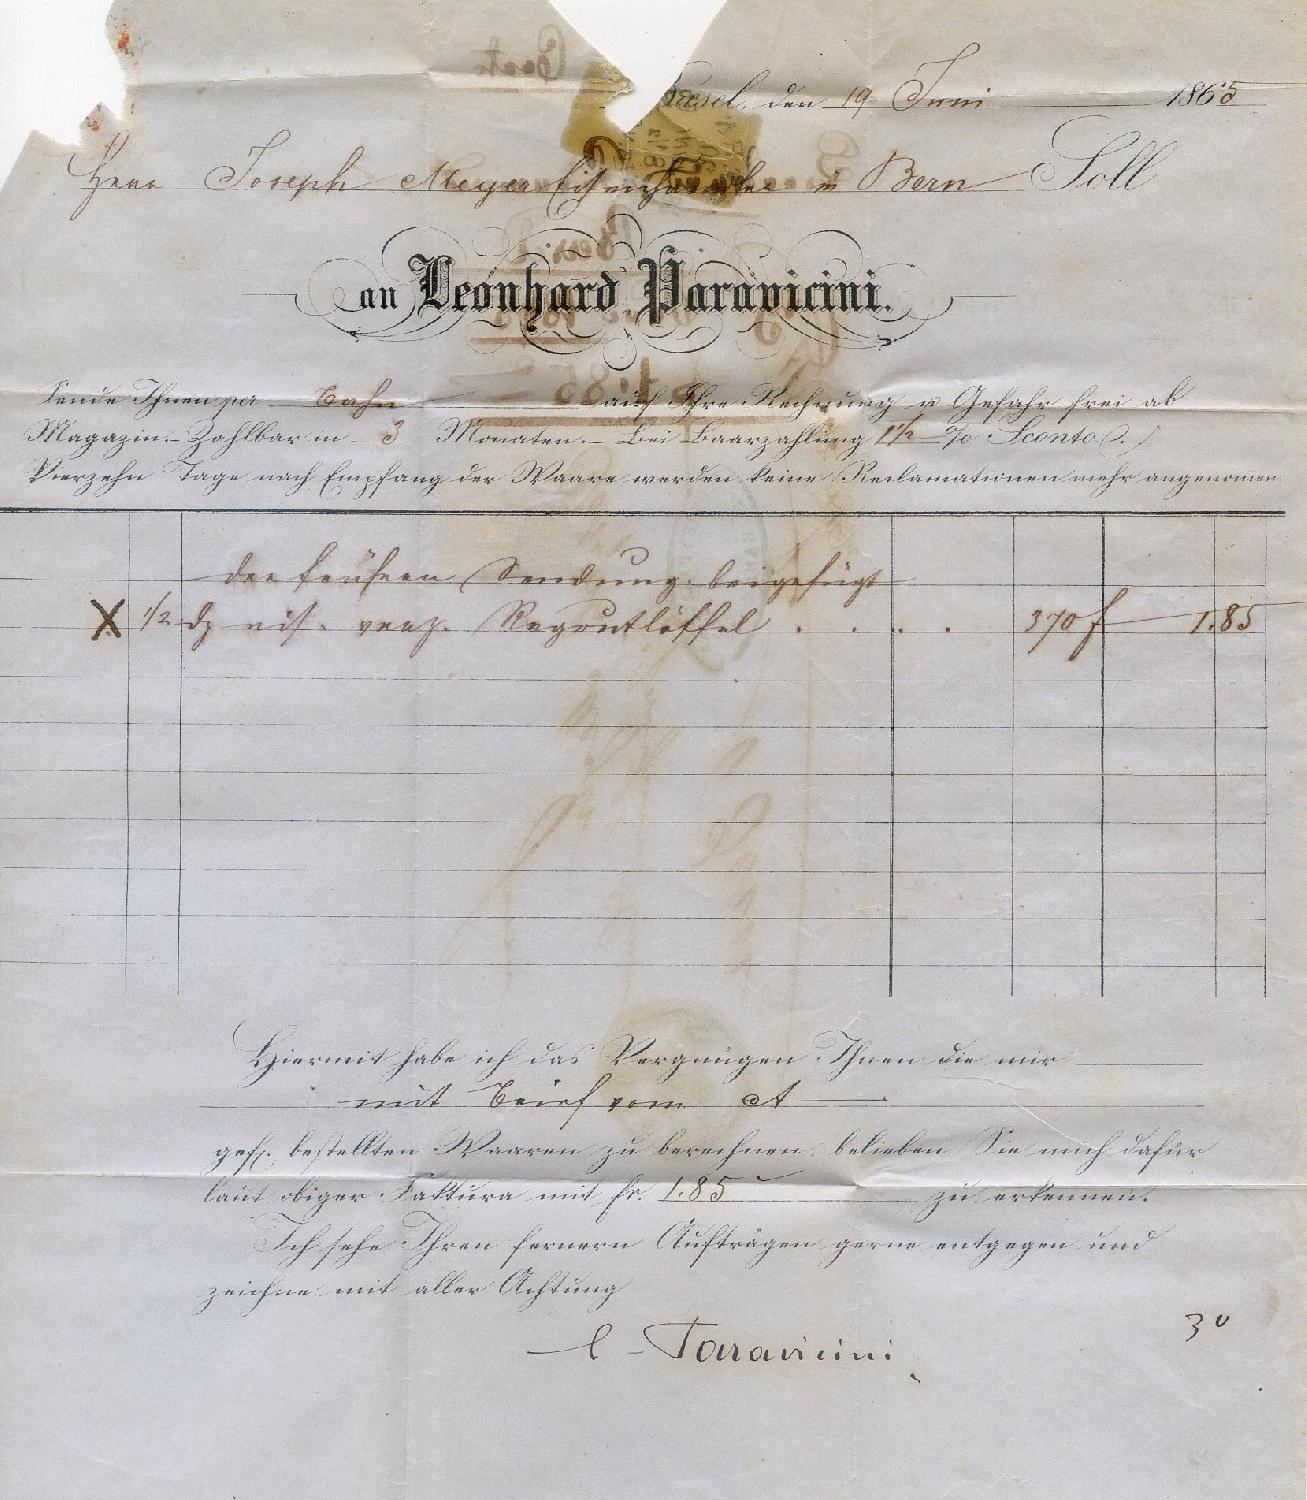 Basel, den 19 Juni 1865
Herr Joseph Meyer Eisenhändler in Bern Soll
an Leonhard Paravicini.
Sende Ihnen per Bahn auf Ihre Rechnung u Gefahr frei ab
Magazin.- Zahlbar in 3 Monaten.- Bei Baarzahlung 1½ % Sconto
Vierzehn Tage nach Empfang der Waare werden keine Reclamationen mehr angenommen
der frühern Sendung beigefügt
X 1/2 dz eis. verz. Ragoutlöffel . . . . 370 f 1.85
Hiermit habe ich das Vergnügen Ihnen die mir
mit Brief vom ct
gefl. bestellten Waaren zu berechnen, belieben Sie mich dafür
laut obiger Faktura mit fr. 1.85 zu erkennen.
Ich sehe Ihren fernern Aufträgen gerne entgegen und
zeichne mit aller Achtung
L Paravicini